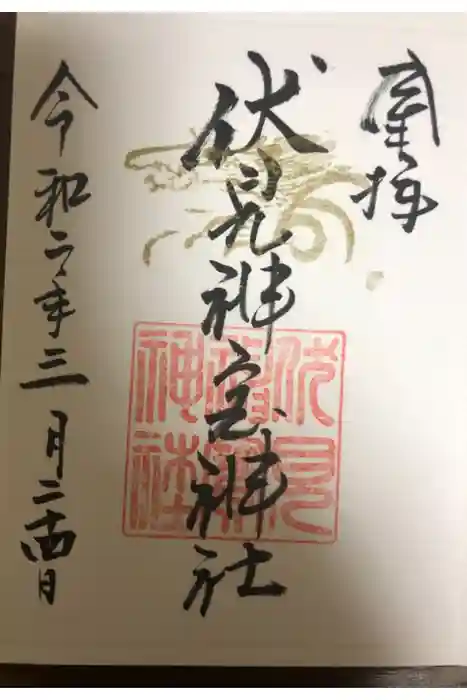 奉拝
伏見神宝神社
令和二年三月二十四日
伏見
神寶
神社